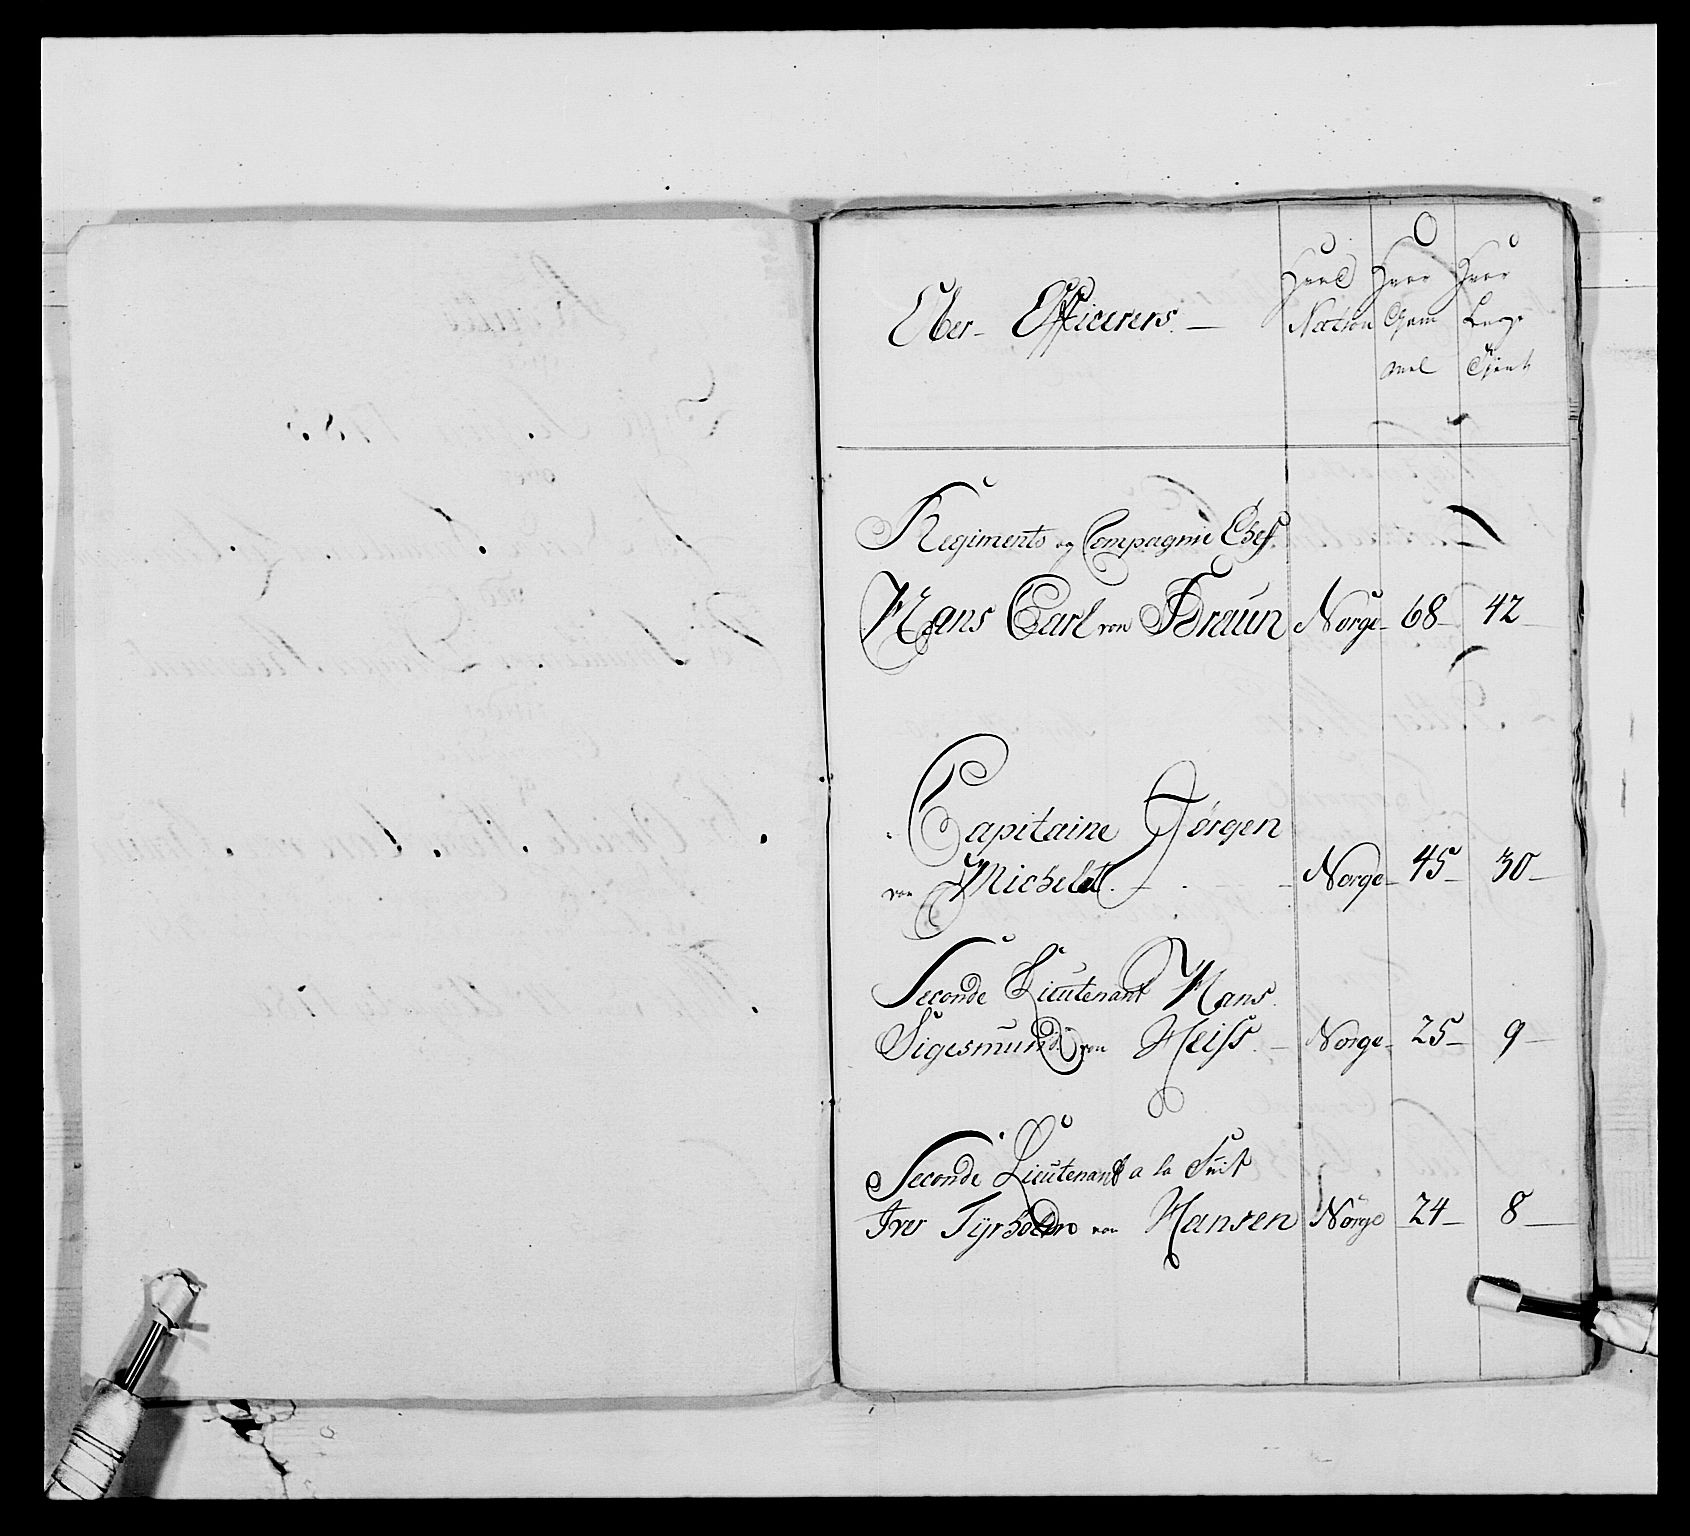 Ober- Officerers.
Hvad Nation
Hvor Gam mel
Hvor Længe Tjent
Regiments og Compagnie Chef
Hans Carl von Braun Norge- 68- 42-
Capitaine Jørgen
von Michelet. - . - - - Norge- 45- 30-
Seconde Lieutenant Hans
Sigesmund von Heiss. - Norge- 25- 9-
Seconde Lieutenant a la Suit
Iver Tyrholm von Hansen Norge 24- 8-